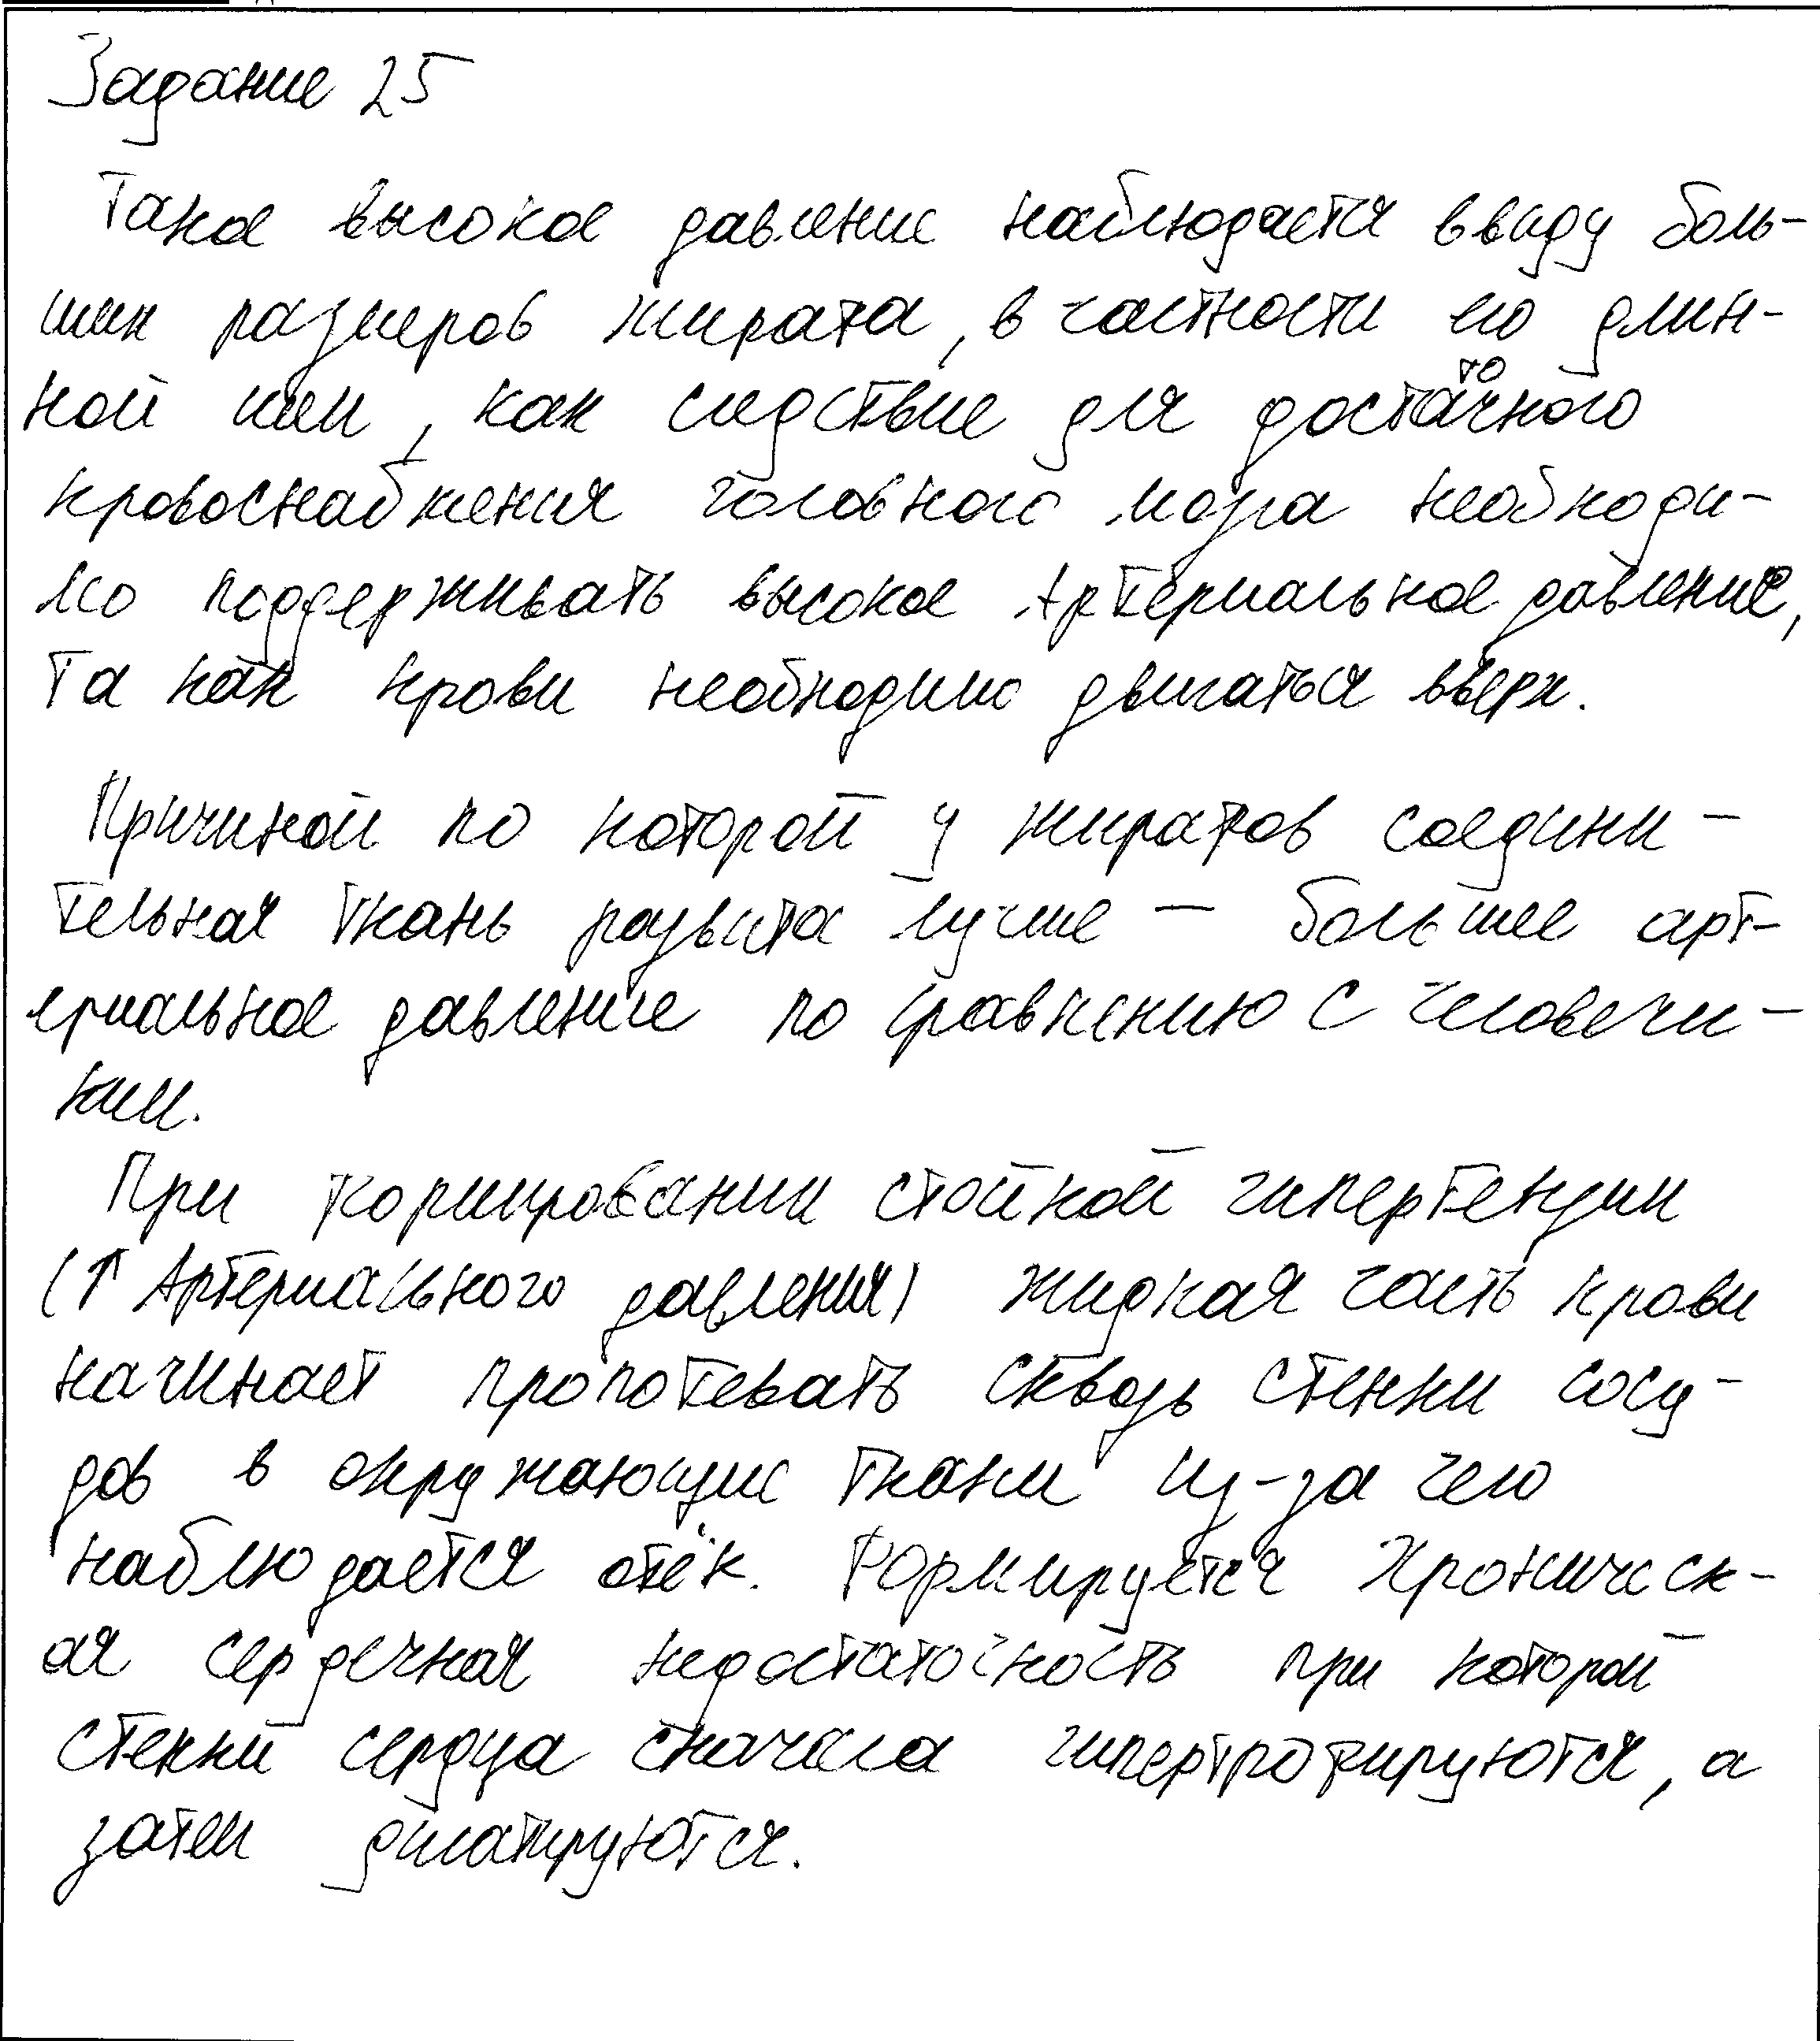 Задание 25
Такое высокое давление наблюдается ввиду боль-
ших размеров жирафа, в частности его длин-
ной шеи, как следствие для достаточного
кровоснабжения головного мозга необходи-
мо поддерживать высокое Артериальное давление,
та как крови необходимо двигаться вверх.
Причиной по которой у жирафов соедини-
тельная ткань развита лучше — большее арт-
ериальное давление по сравнению с человечи-
ким.
При формировании стойкой гипертензии
(↑ Артериального давления) жидкая часть крови
начинает пропотевать сквозь стенки сосу-
дов в окружающие ткани из-за чего
наблюдается отёк. Формируется Хроническ-
ая сердечная недостаточность при которой
стенки сердца сначала гипертрофируются, а
затем дилатируются.